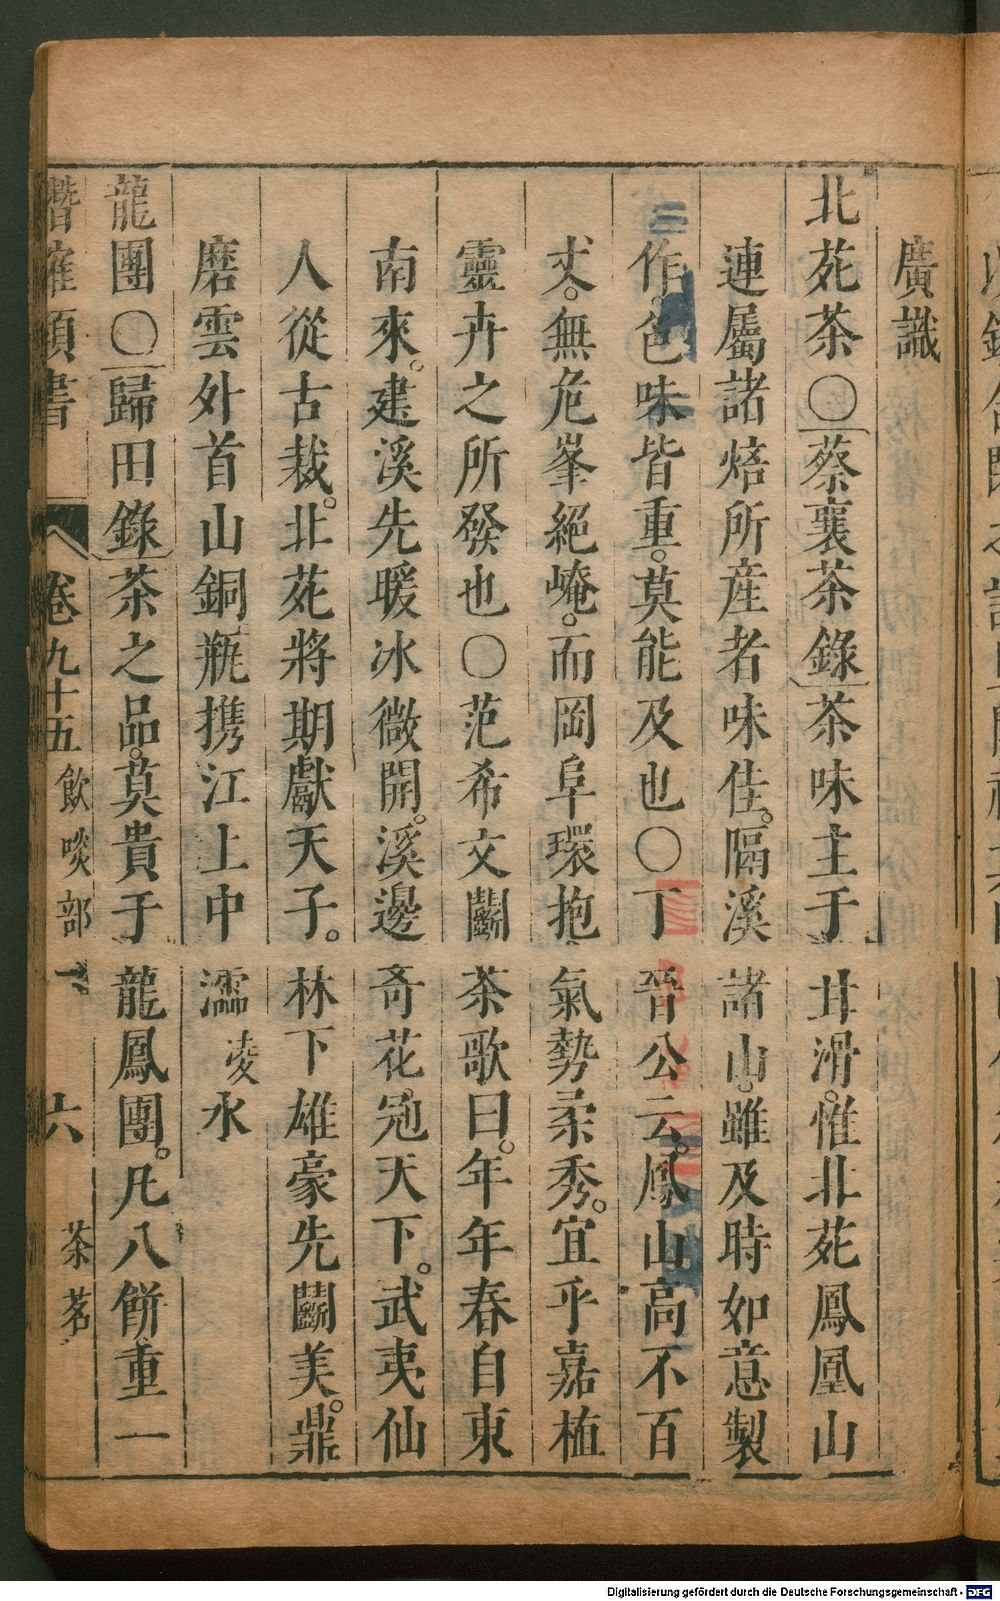 廣識
北苑茶○蔡襄茶錄茶味主于甘滑。惟北苑鳳凰山
連屬諸焙所產者味佳。隔溪諸山。雖及時如意製
作。色味皆重。莫能及也○丁晉公云。鳳山高不百
丈。無危峯絕崦。而岡阜環抱氣勢柔秀。宜乎嘉植
靈卉之所發也○范希文鬬茶歌曰。年年春自東
南來。建溪先暖冰微開。溪邊奇花冠天下。武夷仙
人從古裁。北苑將期獻天子。林下雄豪先鬬美。鼎
磨雲外首山銅瓶携江上中濡凌水
龍團○歸田錄茶之品。莫貴于龍鳳團。凡八餅重一
潛確類書 卷九十五 飲啖部一 六 茶茗
Digitalisierung gefördert durch die Deutsche Forschungsgemeinschaft - DFG